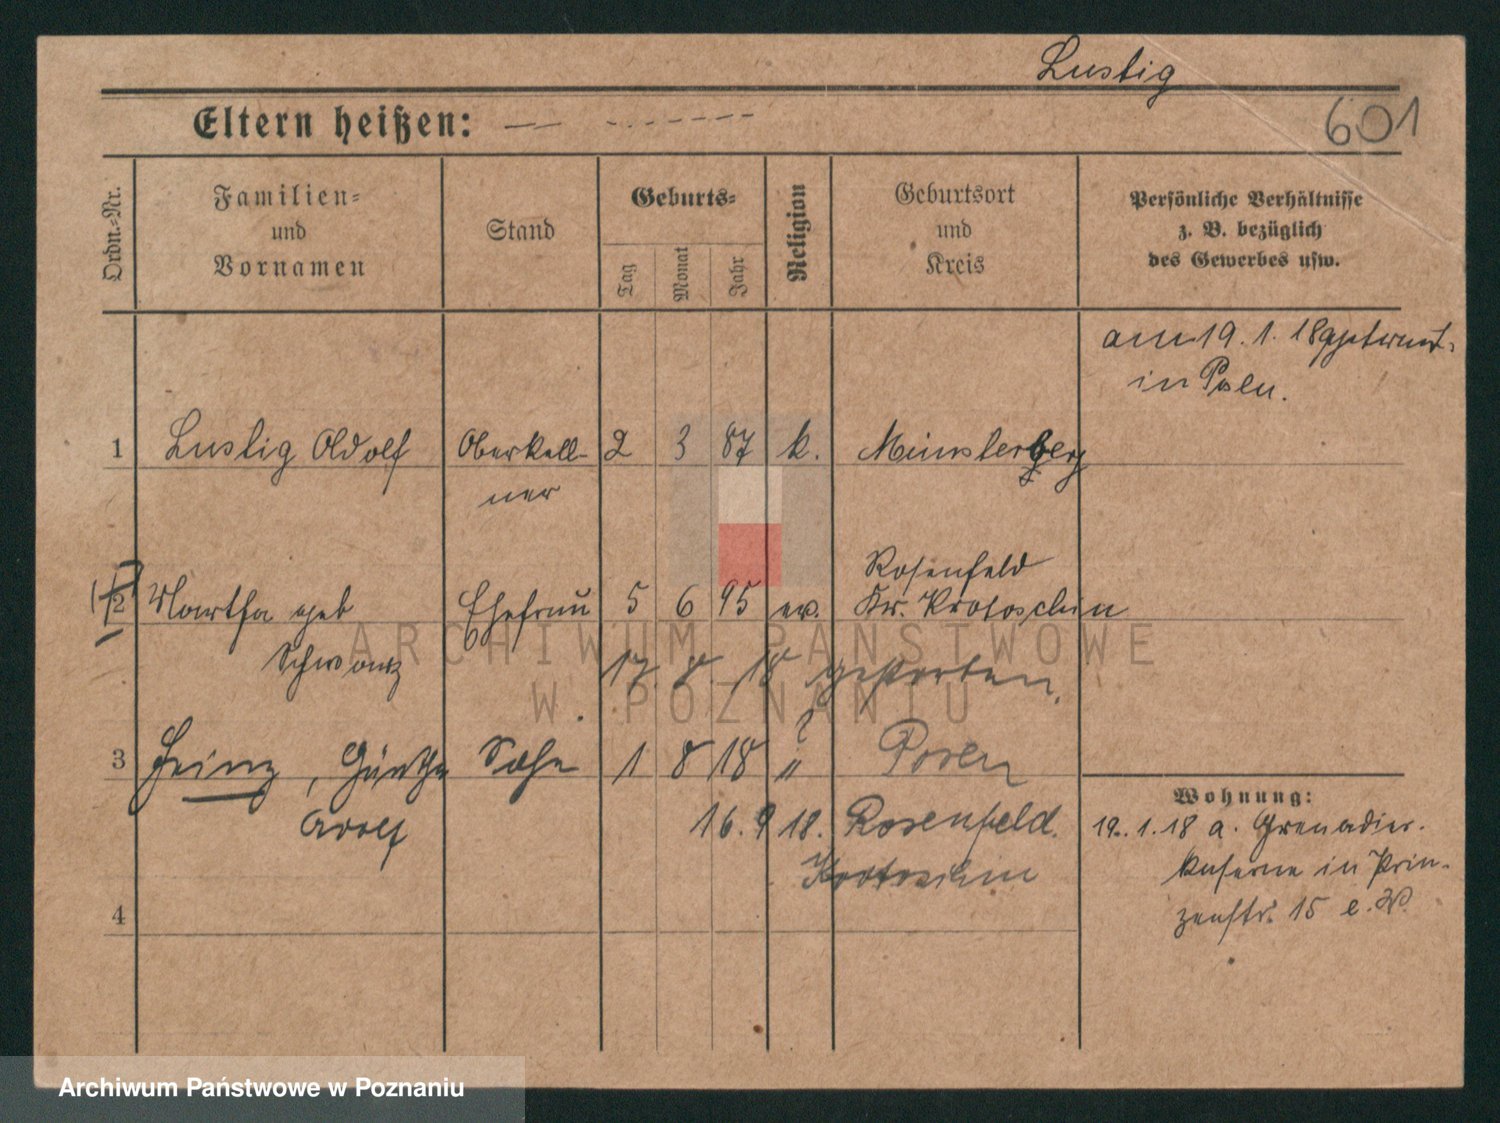 Lustig
601
Eltern heißen: — - - - - - - -
Ordn.-Nr.
Familien-
und
Vornamen
Stand
Geburts-
Tag
Monat
Jahr
Religion
Geburtsort
und
Kreis
Persönliche Verhältnisse
z. B. bezüglich
des Gewerbes usw.
am 19. 1. 18 getraut
in Posen.
1 Lustig Adolf Oberkell- 2 3 87 k. Münsterberg
ner
2 Martha geb Ehefrau 5 6 95 ev. Rosenfeld
Kr. Krotoschin
Schwarz 17 8. 18 gestorben.
3 Heinz, Günther Sohn 1 8 18 " ? Posen
Adolf 16. 9 18. Rosenfeld.
Krotoschin
4
Wohnung:
19. 1. 18 a. Grenadier-
kaserne in Prin-
zenstr. 15 e. W.
ARCHIWUM PAŃSTWOWE
W POZNANIU
Archiwum Państwowe w Poznaniu